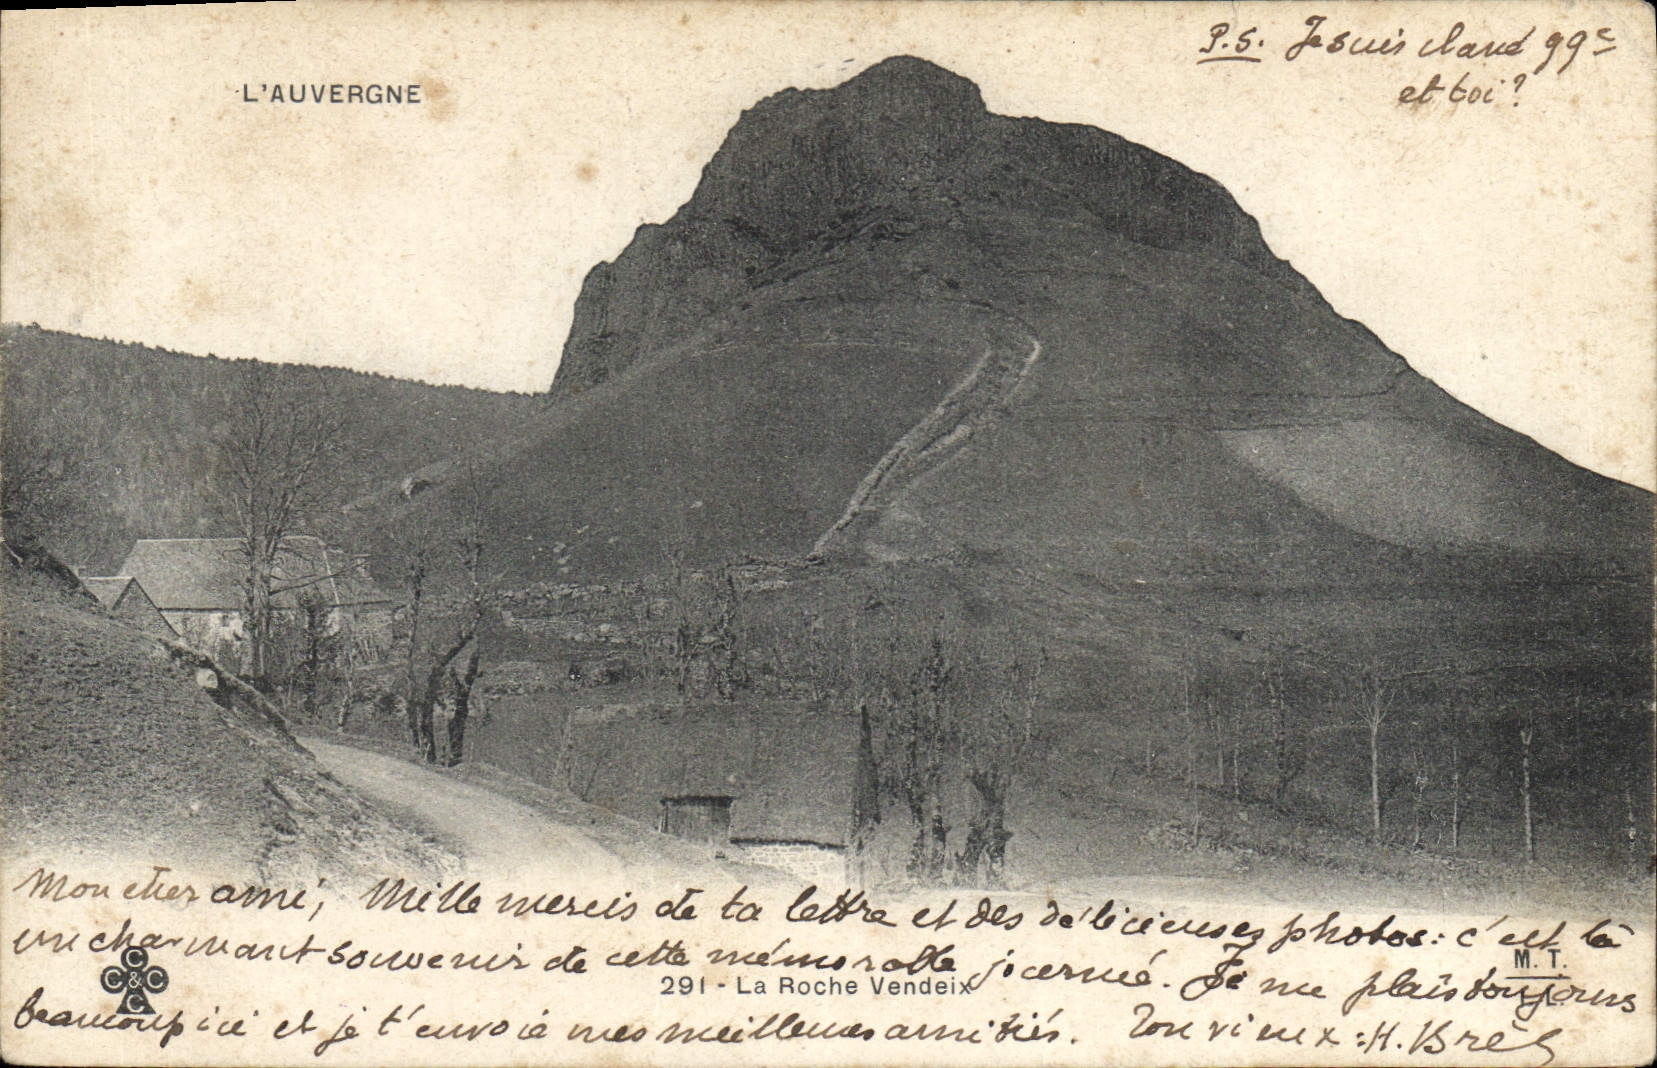 P.S. Je suis classé 99e
et toi?
L'AUVERGNE
Mon cher ami, Mille mercis de ta lettre et des délicieuses photos: c'est là
un charmant souvenir de cette mémorable journée. Je me plais toujours
C C & C C
291 - La Roche Vendeix
M. T.
beaucoup ici et je t'envoie mes meilleures amitiés. Ton vieux: H. Brés